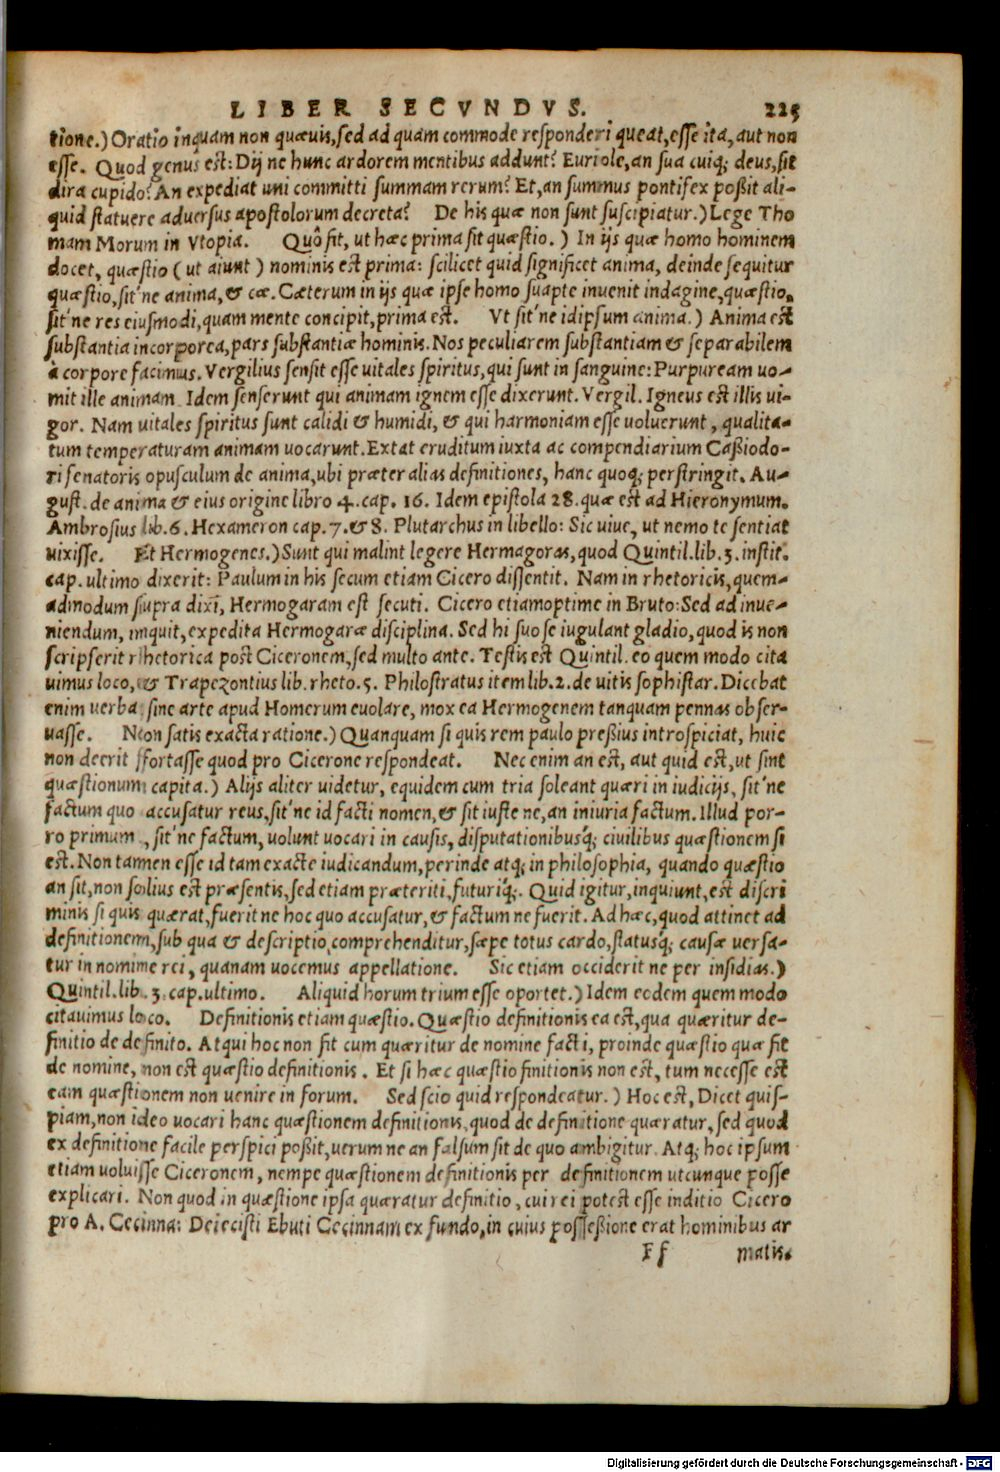 LIBER SECVNDVS. 225
tione.) Oratio inquam non quæuis, sed ad quam commode responderi queat, esse ita, aut non
esse. Quod genus est: Dij ne hunc ardorem mentibus addunt? Euriole, an sua cuiq; deus, sit
dira cupido? An expediat uni committi summam rerum? Et, an summus pontifex poßit ali-
quid statuere aduersus apostolorum decreta? De his quæ non sunt suscipiatur.) Lege Tho
mam Morum in Vtopia. Quô fit, ut hæc prima sit quæstio.) In ijs quæ homo hominem
docet, quæstio (ut aiunt) nominis est prima: scilicet quid significet anima, deinde sequitur
quæstio, sit'ne anima, & cæ. Cæterum in ijs quæ ipse homo suapte inuenit indagine, quæstio,
sit'ne res eiusmodi, quam mente concipit, prima est. Vt sit'ne id ipsum anima.) Anima est
substantia incorporea, pars substantiæ hominis. Nos peculiarem substantiam & separabilem
à corpore facimus. Vergilius sensit esse uitales spiritus, qui sunt in sanguine: Purpuream uo-
mit ille animam. Idem senserunt qui animam ignem esse dixerunt. Vergil. Igneus est illis ui-
gor. Nam uitales spiritus sunt calidi & humidi, & qui harmoniam esse uoluerunt, qualita-
tum temperaturam animam uocarunt. Extat eruditum iuxta ac compendiarium Caßiodo-
ri senatoris opusculum de anima, ubi præter alias definitiones, hanc quoq; perstringit. Au-
gust. de anima & eius origine libro 4. cap. 16. Idem epistola 28. quæ est ad Hieronymum.
Ambrosius lib. 6. Hexameron cap. 7. & 8. Plutarchus in libello: Sic uiue, ut nemo te sentiat
uixisse. Et Hermogenes.) Sunt qui malint legere Hermagoras, quod Quintil. lib. 3. instit.
cap. ultimo dixerit: Paulum in his secum etiam Cicero dissentit. Nam in rhetoricis, quem-
admodum supra dixi, Hermogaram est secuti. Cicero etiam optime in Bruto: Sed ad inue-
niendum, inquit, expedita Hermogaræ disciplina. Sed hi suo se iugulant gladio, quod is non
scripserit rhetorica post Ciceronem, sed multo ante. Testis est Quintil. eo quem modo cita
uimus loco, & Trapezontius lib. rheto. 5. Philostratus item lib. 2. de uitis sophistar. Dicebat
enim uerba sine arte apud Homerum euolare, mox ea Hermogenem tanquam pennas obser-
uasse. Non satis exacta ratione.) Quanquam si quis rem paulo preßius introspiciat, huic
non deerit fortasse quod pro Cicerone respondeat. Nec enim an est, aut quid est, ut sint
quæstionum capita.) Alijs aliter uidetur, equidem cum tria soleant quæri in iudicijs, sit'ne
factum quo accusatur reus, sit'ne id facti nomen, & sit iuste ne, an iniuria factum. Illud por-
ro primum, sit'ne factum, uolunt uocari in causis, disputationibusq; ciuilibus quæstionem si
est. Non tamen esse id tam exacte iudicandum, perinde atq; in philosophia, quando quæstio
an sit, non solius est præsentis, sed etiam præteriti, futuriq;. Quid igitur, inquiunt, est discri
minis si quis quærat, fuerit ne hoc quo accusatur, & factum ne fuerit. Ad hæc, quod attinet ad
definitionem, sub qua & descriptio comprehenditur, sæpe totus cardo, statusq; causæ uersa-
tur in nomine rei, quanam uocemus appellatione. Sic etiam occiderit ne per insidias.)
Quintil. lib. 3. cap. ultimo. Aliquid horum trium esse oportet.) Idem eodem quem modo
citauimus loco. Definitionis etiam quæstio. Quæstio definitionis ea est, qua quæritur de-
finitio de definito. Atqui hoc non fit cum quæritur de nomine facti, proinde quæstio quæ fit
de nomine, non est quæstio definitionis. Et si hæc quæstio finitionis non est, tum necesse est
eam quæstionem non uenire in forum. Sed scio quid respondeatur.) Hoc est, Dicet quis-
piam, non ideo uocari hanc quæstionem definitionis, quod de definitione quæratur, sed quod
ex definitione facile perspici poßit, uerum ne an falsum sit de quo ambigitur. Atq; hoc ipsum
etiam uoluisse Ciceronem, nempe quæstionem definitionis per definitionem utcunque posse
explicari. Non quod in quæstione ipsa quæratur definitio, cui rei potest esse inditio Cicero
pro A. Cecinna: Deiecisti Ebuti Cecinnam ex fundo, in cuius posseßione erat hominibus ar
Ff matis.
Digitalisierung gefördert durch die Deutsche Forschungsgemeinschaft - DFG